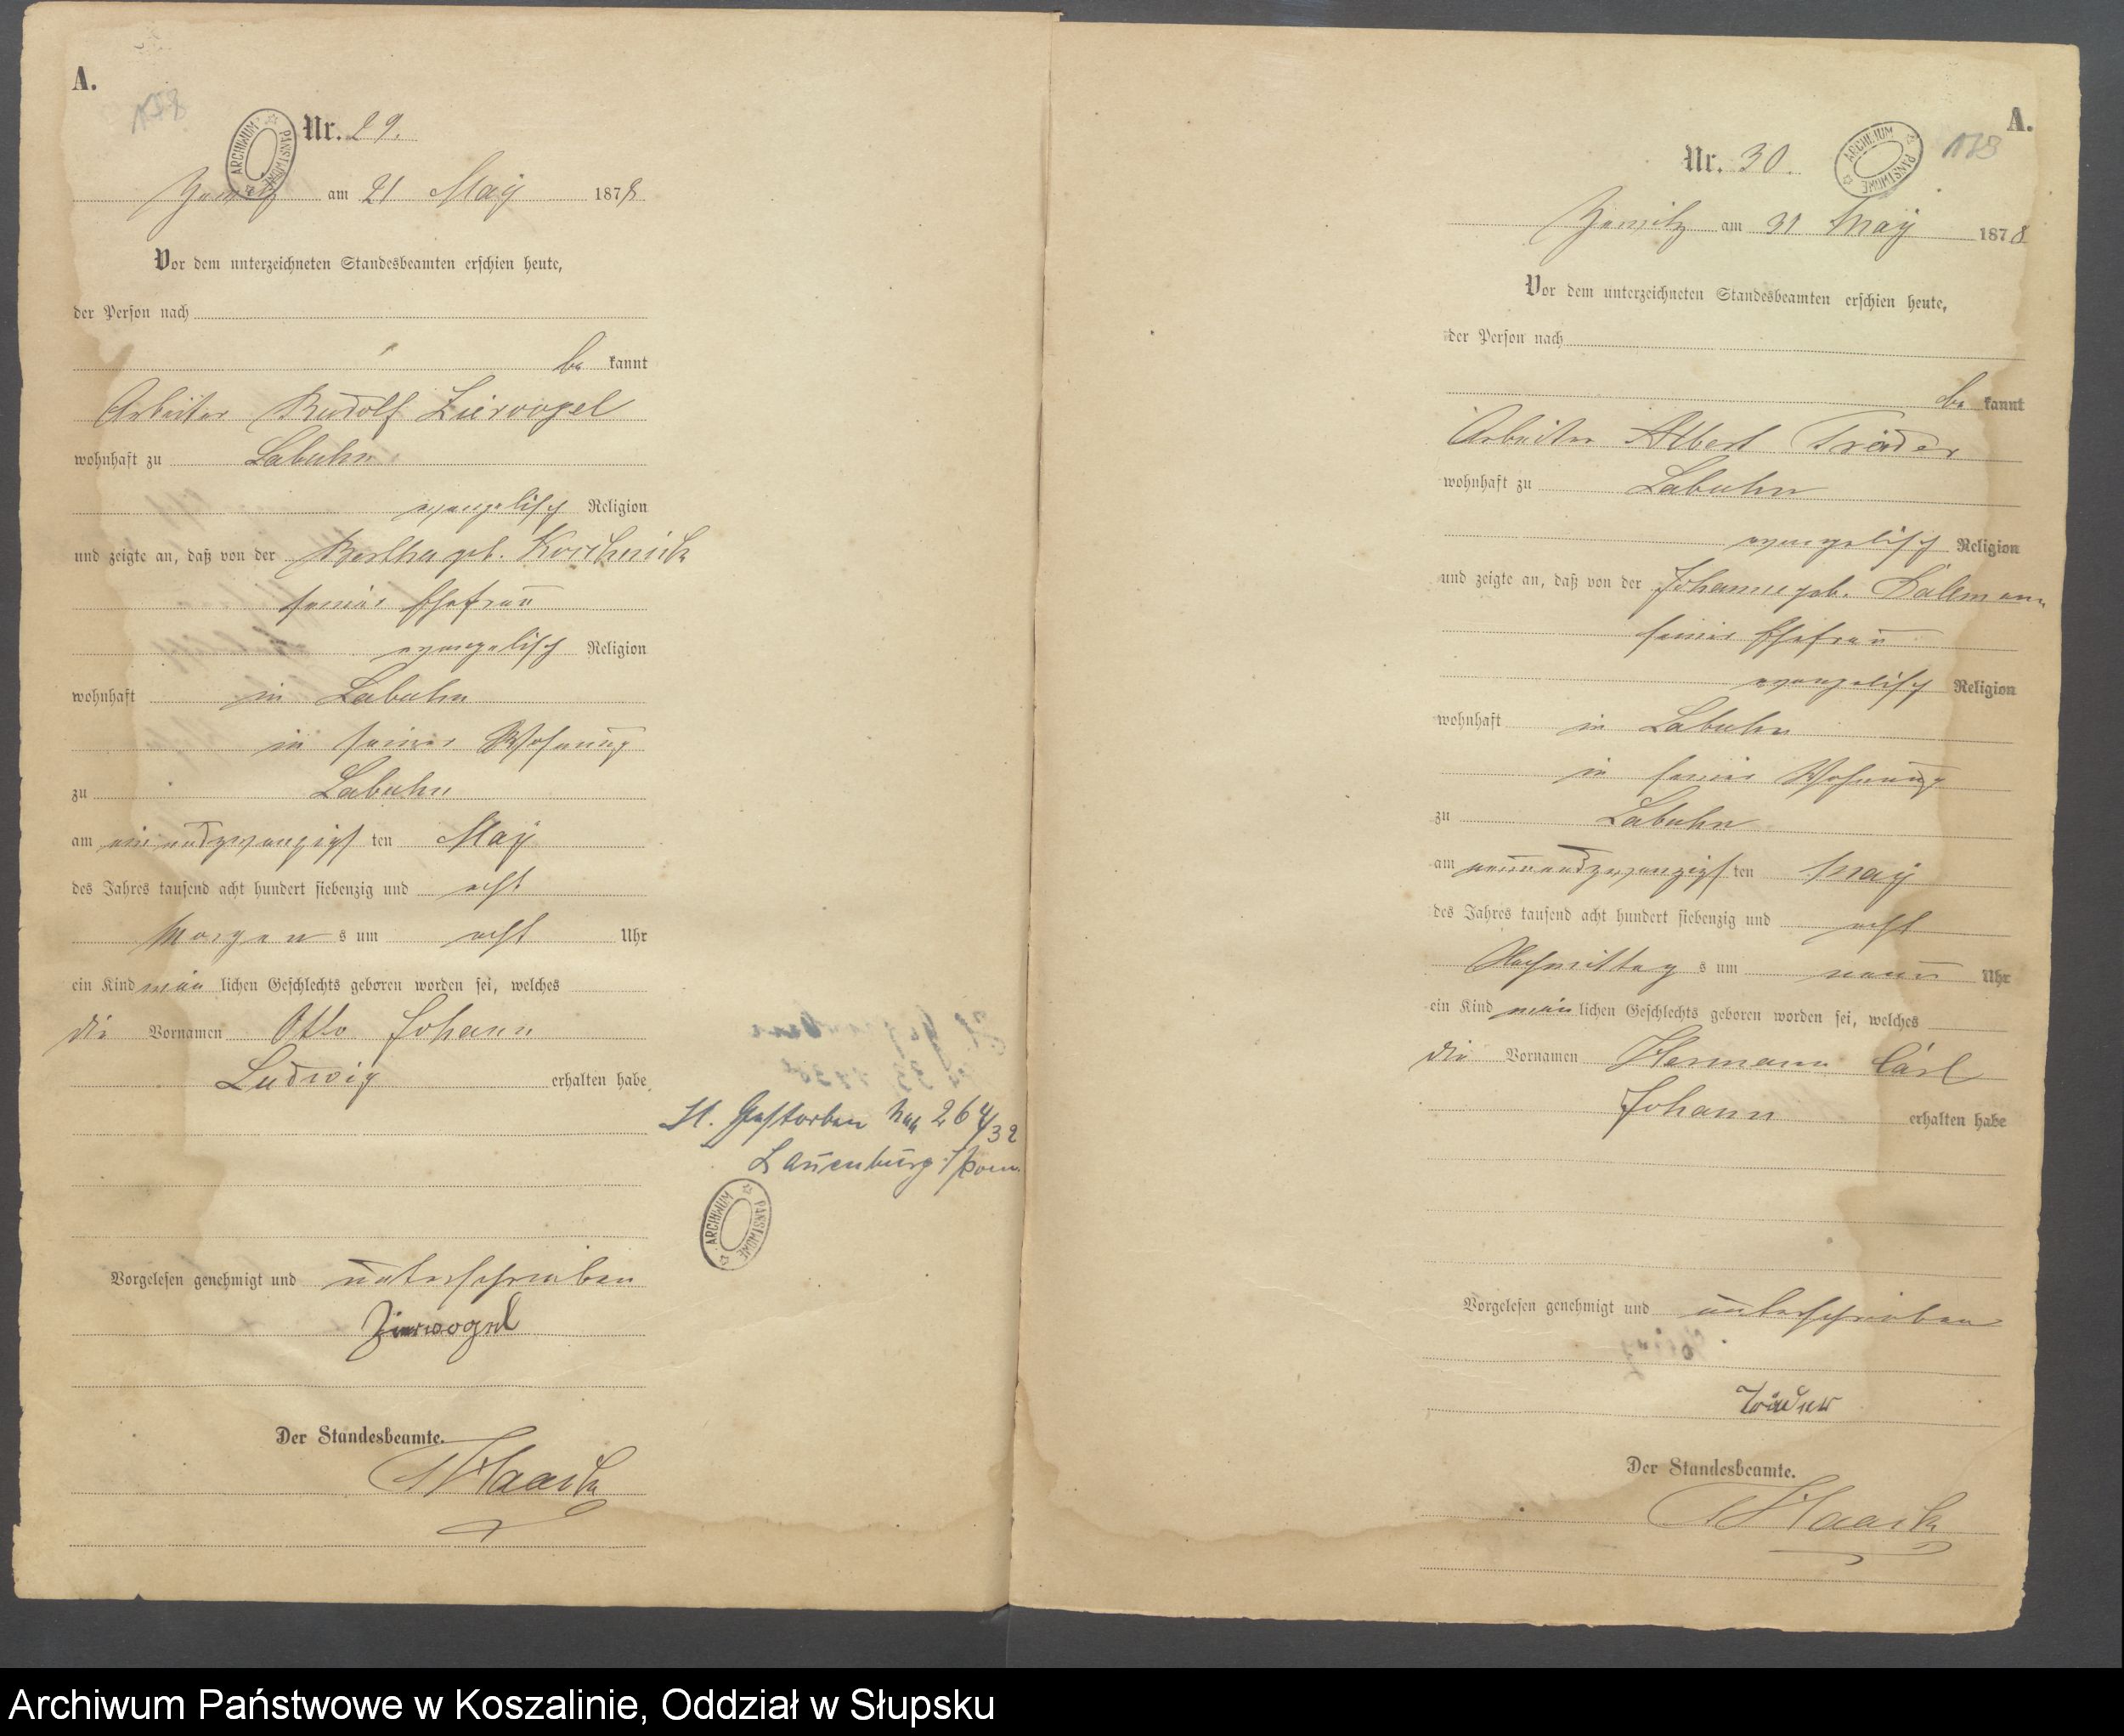 A.
Nr. 29.
am 21 May 1878
Vor dem unterzeichneten Standesbeamten erschien heute,
der Person nach
be kannt
Arbeiter Rudolf Ziervogel
wohnhaft zu Labuhn
evangelisch Religion
und zeigte an, daß von der Bertha geb.
seiner Ehefrau
evangelisch Religion
wohnhaft in Labuhn
in seiner Wohnung
zu Labuhn
am einundzwanzigsten May
des Jahres tausend acht hundert siebenzig und acht
Morgens um acht Uhr
ein Kind män lichen Geschlechts geboren worden sei, welches
die Vornamen Otto Johann
Ludwig erhalten habe
St. Gestorben No 26 4/32
Lauenburg i/Pom.
ARCHIWUM PAŃSTWOWE
Vorgelesen genehmigt und unterschrieben
Zierwogel
Der Standesbeamte.
Haack
A.
Nr. 30.
Zewitz am 31 May 1878
Vor dem unterzeichneten Standesbeamten erschien heute,
der Person nach
be kannt
Arbeiter Albert Träder
wohnhaft zu Labuhn
evangelisch Religion
und zeigte an, daß von der Johanne geb. Dallmann
seiner Ehefrau
evangelisch Religion
wohnhaft in Labuhn
in seiner Wohnung
zu Labuhn
am neunundzwanzigsten May
des Jahres tausend acht hundert siebenzig und acht
Nachmittags um neun Uhr
ein Kind män lichen Geschlechts geboren worden sei, welches
die Vornamen Hermann Carl
Johann erhalten habe
Vorgelesen genehmigt und unterschrieben
Träder
Der Standesbeamte.
Haack
Archiwum Państwowe w Koszalinie, Oddział w Słupsku